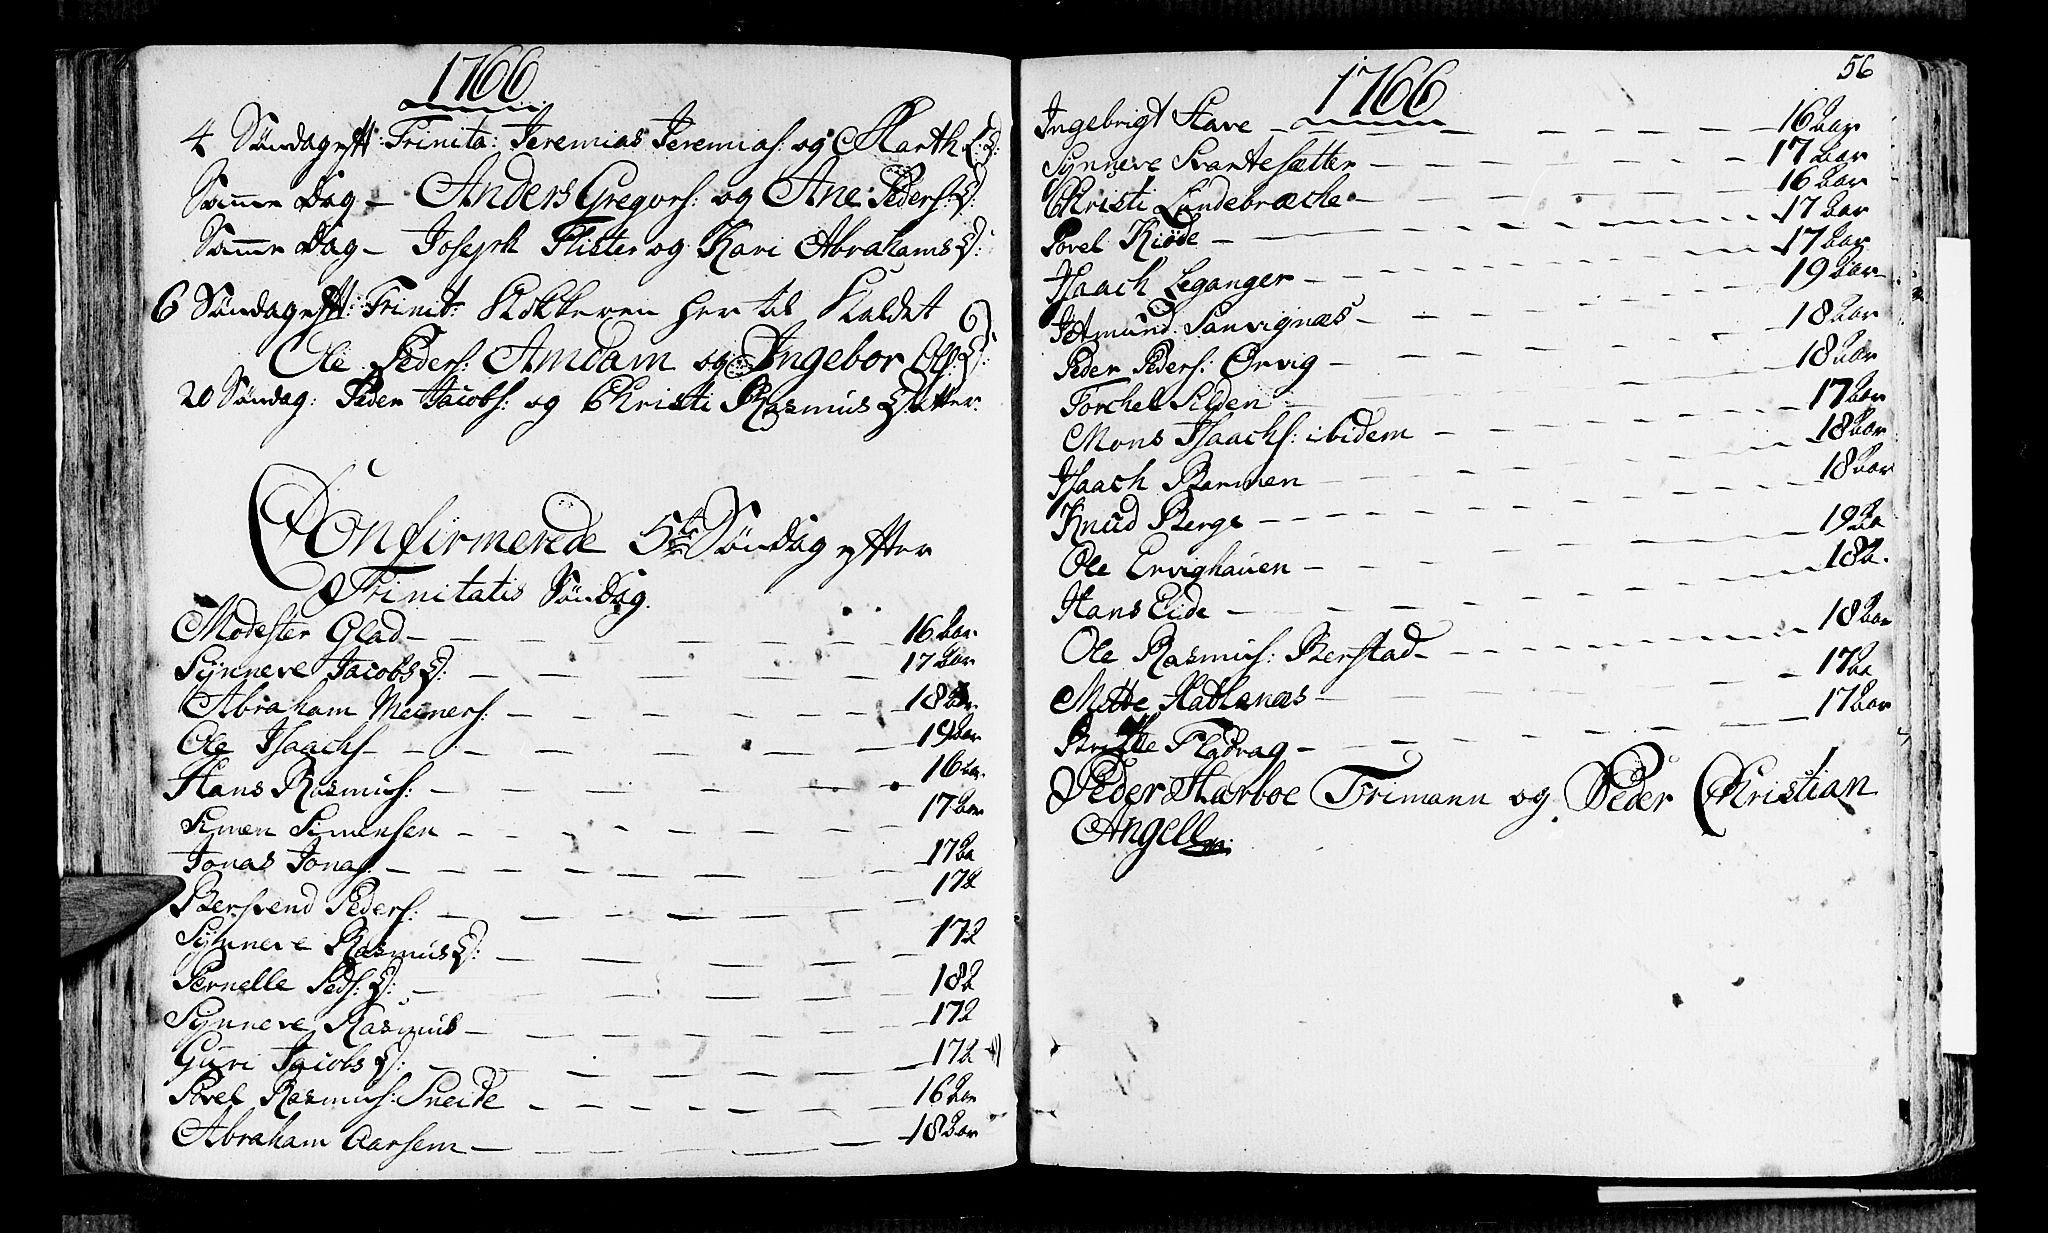 1766
4 Søndag eft: Trinita: Jeremias Jeremias: og Marth L: D:
Samme Dag – Anders Gregors: og Ane Peders: D:
Samme Dag – Joseph Flister og Kari Abrahams D:
6 Søndag eft: Trinit: Klokkeren her til Kaldet
Ole Peders: Amdam og Ingebor Ols: D:
20 Søndag: Peder Jacobs: og Christi Rasmus Datter:
Confirmerede 5te Søndag efter
Trinitatis Søndag.
Modester Glad – 16 aar
Synneve Jacobs D: – 17 aar
Abraham Meiners: – 18 aar
Ole Isaachs – 19 aar
Hans Rasmus: – 16 aar
Simen Simensen – 17 aar
Jonas Jonas: – 17 aa
Bersvend Peders: – 17 a
Synneve Rasmus D: – 17 a
Pernelle Peds: D: – 18 a
Synneve Rasmus – 17 a
Guri Jacobs D: – 17 a
Povel Rasmus: Sneide – 16 aar
Abraham Aarsem – 18 aar
56
1766
Ingebrigt Stave – 16 aar
Synneve Svartesætter – 17 aar
Christi Lundebræche – 16 aar
Povel Kiøde – 17 aar
Isaach Leganger – 17 aar
Amund Sanvignæs – 19 aar
Peder Peders: Ørvig – 18 aar
Torchel Silden – 18 aar
Mons Isaachs: ibidem – 17 aar
Isaach Barmen – 18 aar
Knud Berge – 18 aar
Ole Ervighauen – 19 aa
Hans Eide – 18 a.
Ole Rasmus: Berstad – 18 aar
Mette Hathenæs – 17 aa
Britte Fladrag – 17 aar
Peder Harboe Frimann og Peder Christian
Angell